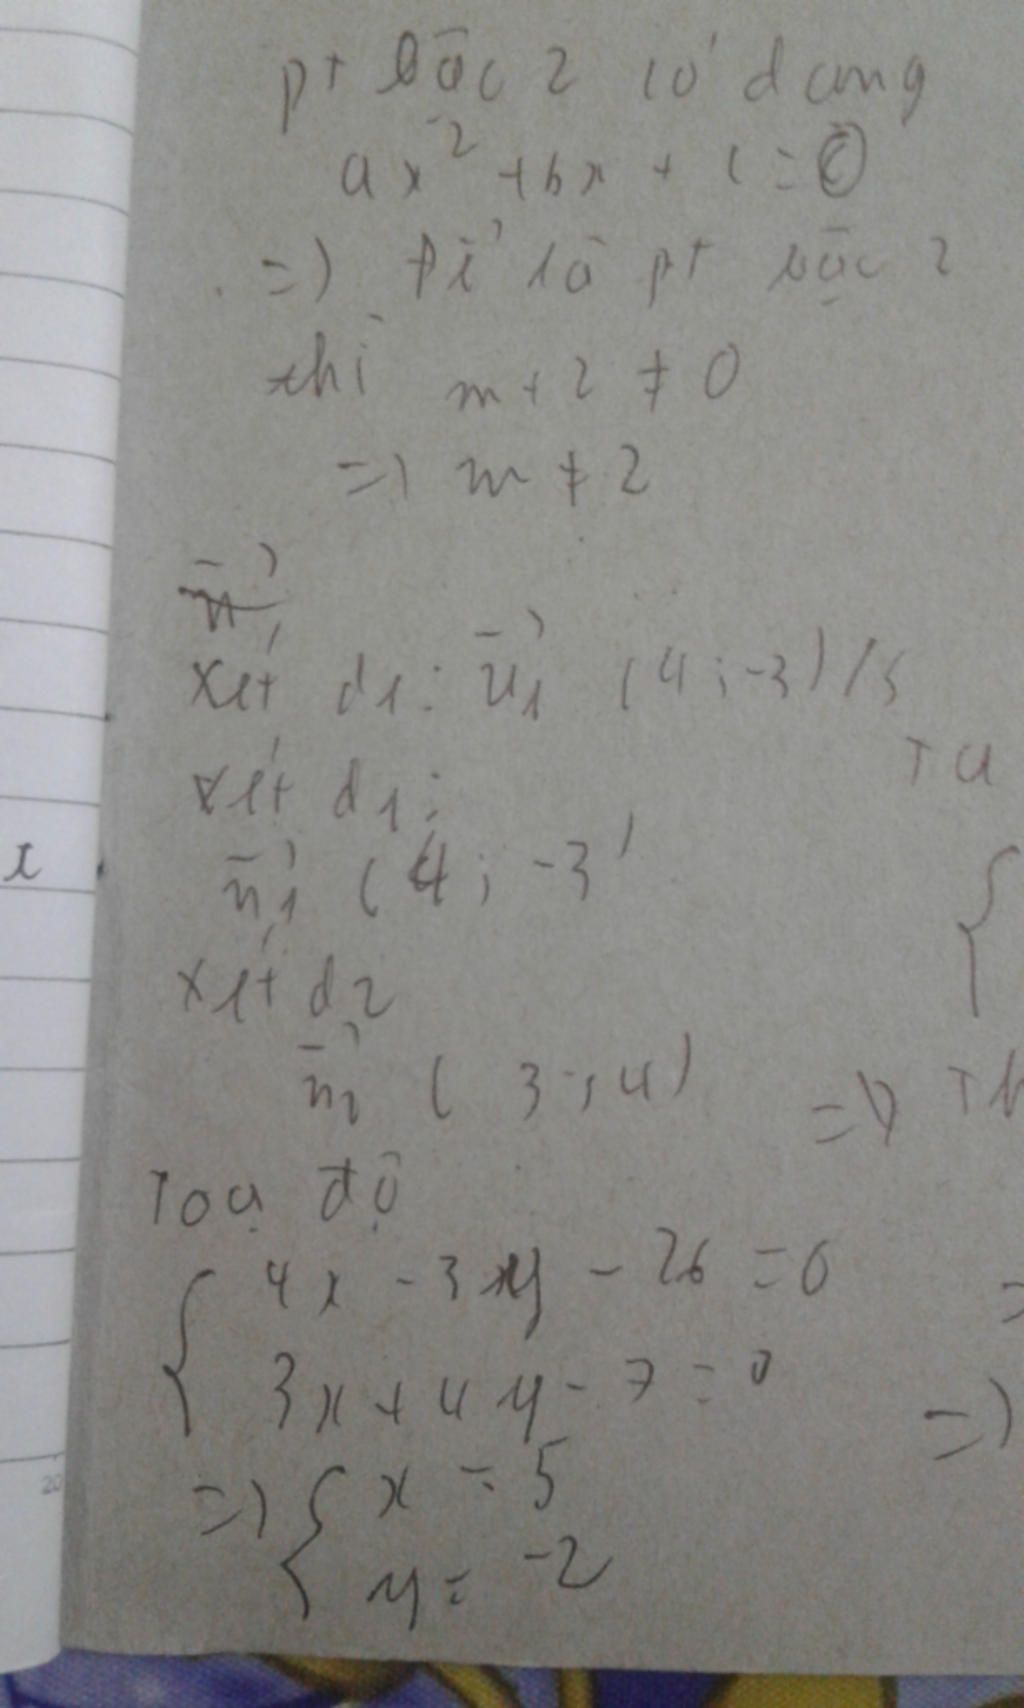 pt bậc 2 có dạng
ax² + bx + c = 0
=) để là pt bậc 2
thì m + 2 ≠ 0
=) m ≠ 2
n⃗
xét d1: u⃗1 (4; -3) / 5
xét d1:
n⃗1 (4; -3)
xét d2
n⃗2 (3; 4)
Toạ độ
{ 4x - 3y - 26 = 0
3x + 4y - 7 = 0
=) { x = 5
y = -2
x
20
+ a
{
=>
=)